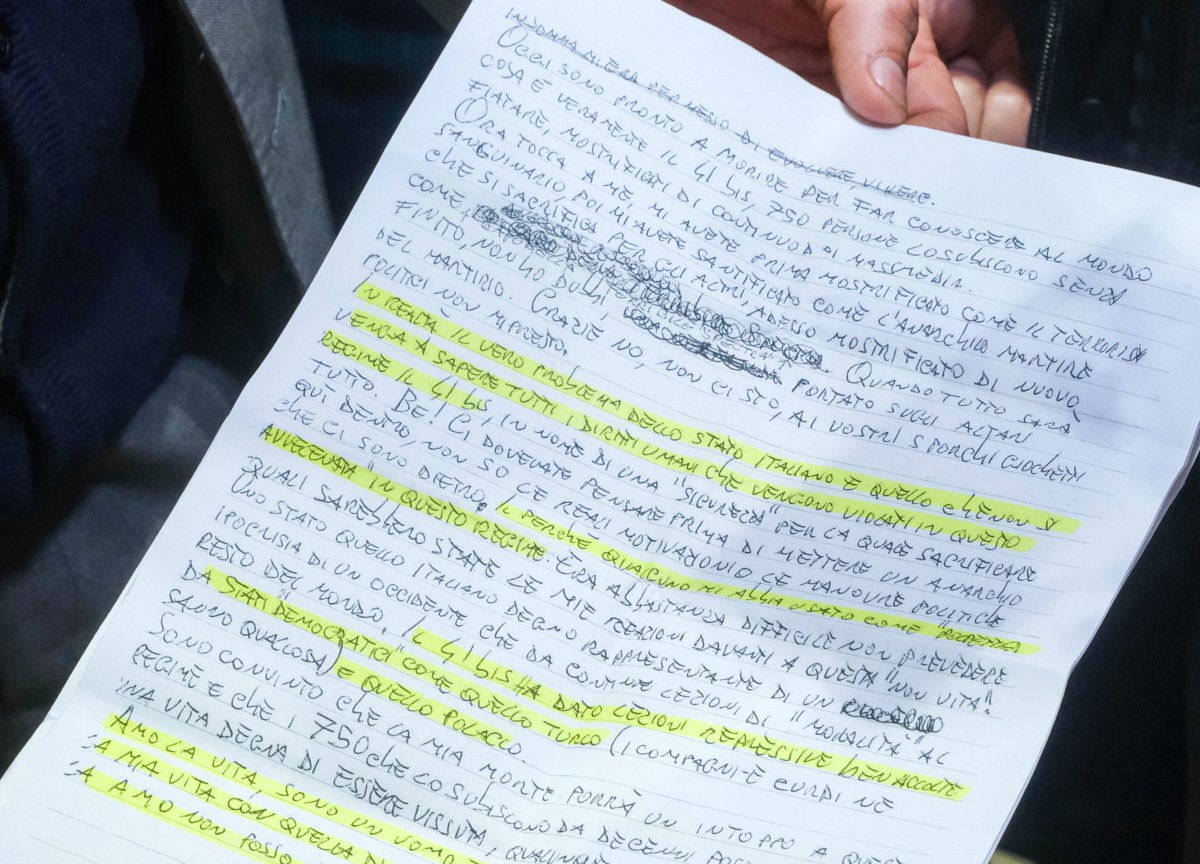 INSOMMA M'ERA PERMESSO DI EVOLVERE, VIVERE.
OGGI SONO PRONTO A MORIRE PER FAR CONOSCERE AL MONDO
COSA È VERAMENTE IL 41 bis, 750 PERSONE LO SUBISCONO SENZA
FIATARE, MOSTRIFICATI DI CONTINUO DAI MASSMEDIA.
ORA TOCCA A ME, MI AVETE PRIMA MOSTRIFICATO COME IL TERRORISTA
SANGUINARIO POI MI AVETE SANTIFICATO COME L'ANARCHICO MARTIRE
CHE SI SACRIFICA PER GLI ALTRI, ADESSO MOSTRIFICATO DI NUOVO
COME . QUANDO TUTTO SARÀ
FINITO, NON HO DUBBI, PORTATO SUGLI ALTARI
DEL MARTIRIO. GRAZIE NO, NON CI STO, AI VOSTRI SPORCHI GIOCHETTI
POLITICI NON MI PRESTO.
IN REALTÀ IL VERO PROBLEMA DELLO STATO ITALIANO È QUELLO CHE NON SI
VENGA A SAPERE TUTTI I DIRITTI UMANI CHE VENGONO VIOLATI IN QUESTO
REGIME IL 41 bis IN NOME DI UNA "SICUREZZA" PER LA QUALE SACRIFICARE
TUTTO. BE! CI DOVEVATE PENSARE PRIMA DI METTERE UN ANARCHICO
QUÌ DENTRO, NON SO LE REALI MOTIVAZIONI O LE MANOVRE POLITICHE
CHE CI SONO DIETRO. IL PERCHÉ QUALCUNO MI ABBIA USATO COME "POLPETTA
AVVELENATA" IN QUESTO REGIME. ERA ABBASTANZA DIFFICILE NON PREVEDERE
QUALI SAREBBERO STATE LE MIE REAZIONI DAVANTI A QUESTA "NON VITA".
UNO STATO QUELLO ITALIANO DEGNO RAPPRESENTANTE DI UN
IPOCRISIA DI UN OCCIDENTE CHE DA CONTINUE LEZIONI DI "MORALITÀ" AL
RESTO DEL MONDO. IL 41 bis HA DATO LEZIONI REPRESSIVE BEN ACCOLTE
DA STATI "DEMOCRATICI" COME QUELLO TURCO (I COMPAGNI E CURDI NE
SANNO QUALCOSA) E QUELLO POLACCO.
SONO CONVINTO CHE LA MIA MORTE PORRÀ UN INTOPPO A QUESTO
REGIME E CHE I 750 CHE LO SUBISCONO DA DECENNI
'NA VITA DEGNA DI ESSERE VISSUTA, QUALUNQUE
AMO LA VITA, SONO UN UOMO
'A MIA VITA CON QUELLA DI
'A AMO NON POSSO